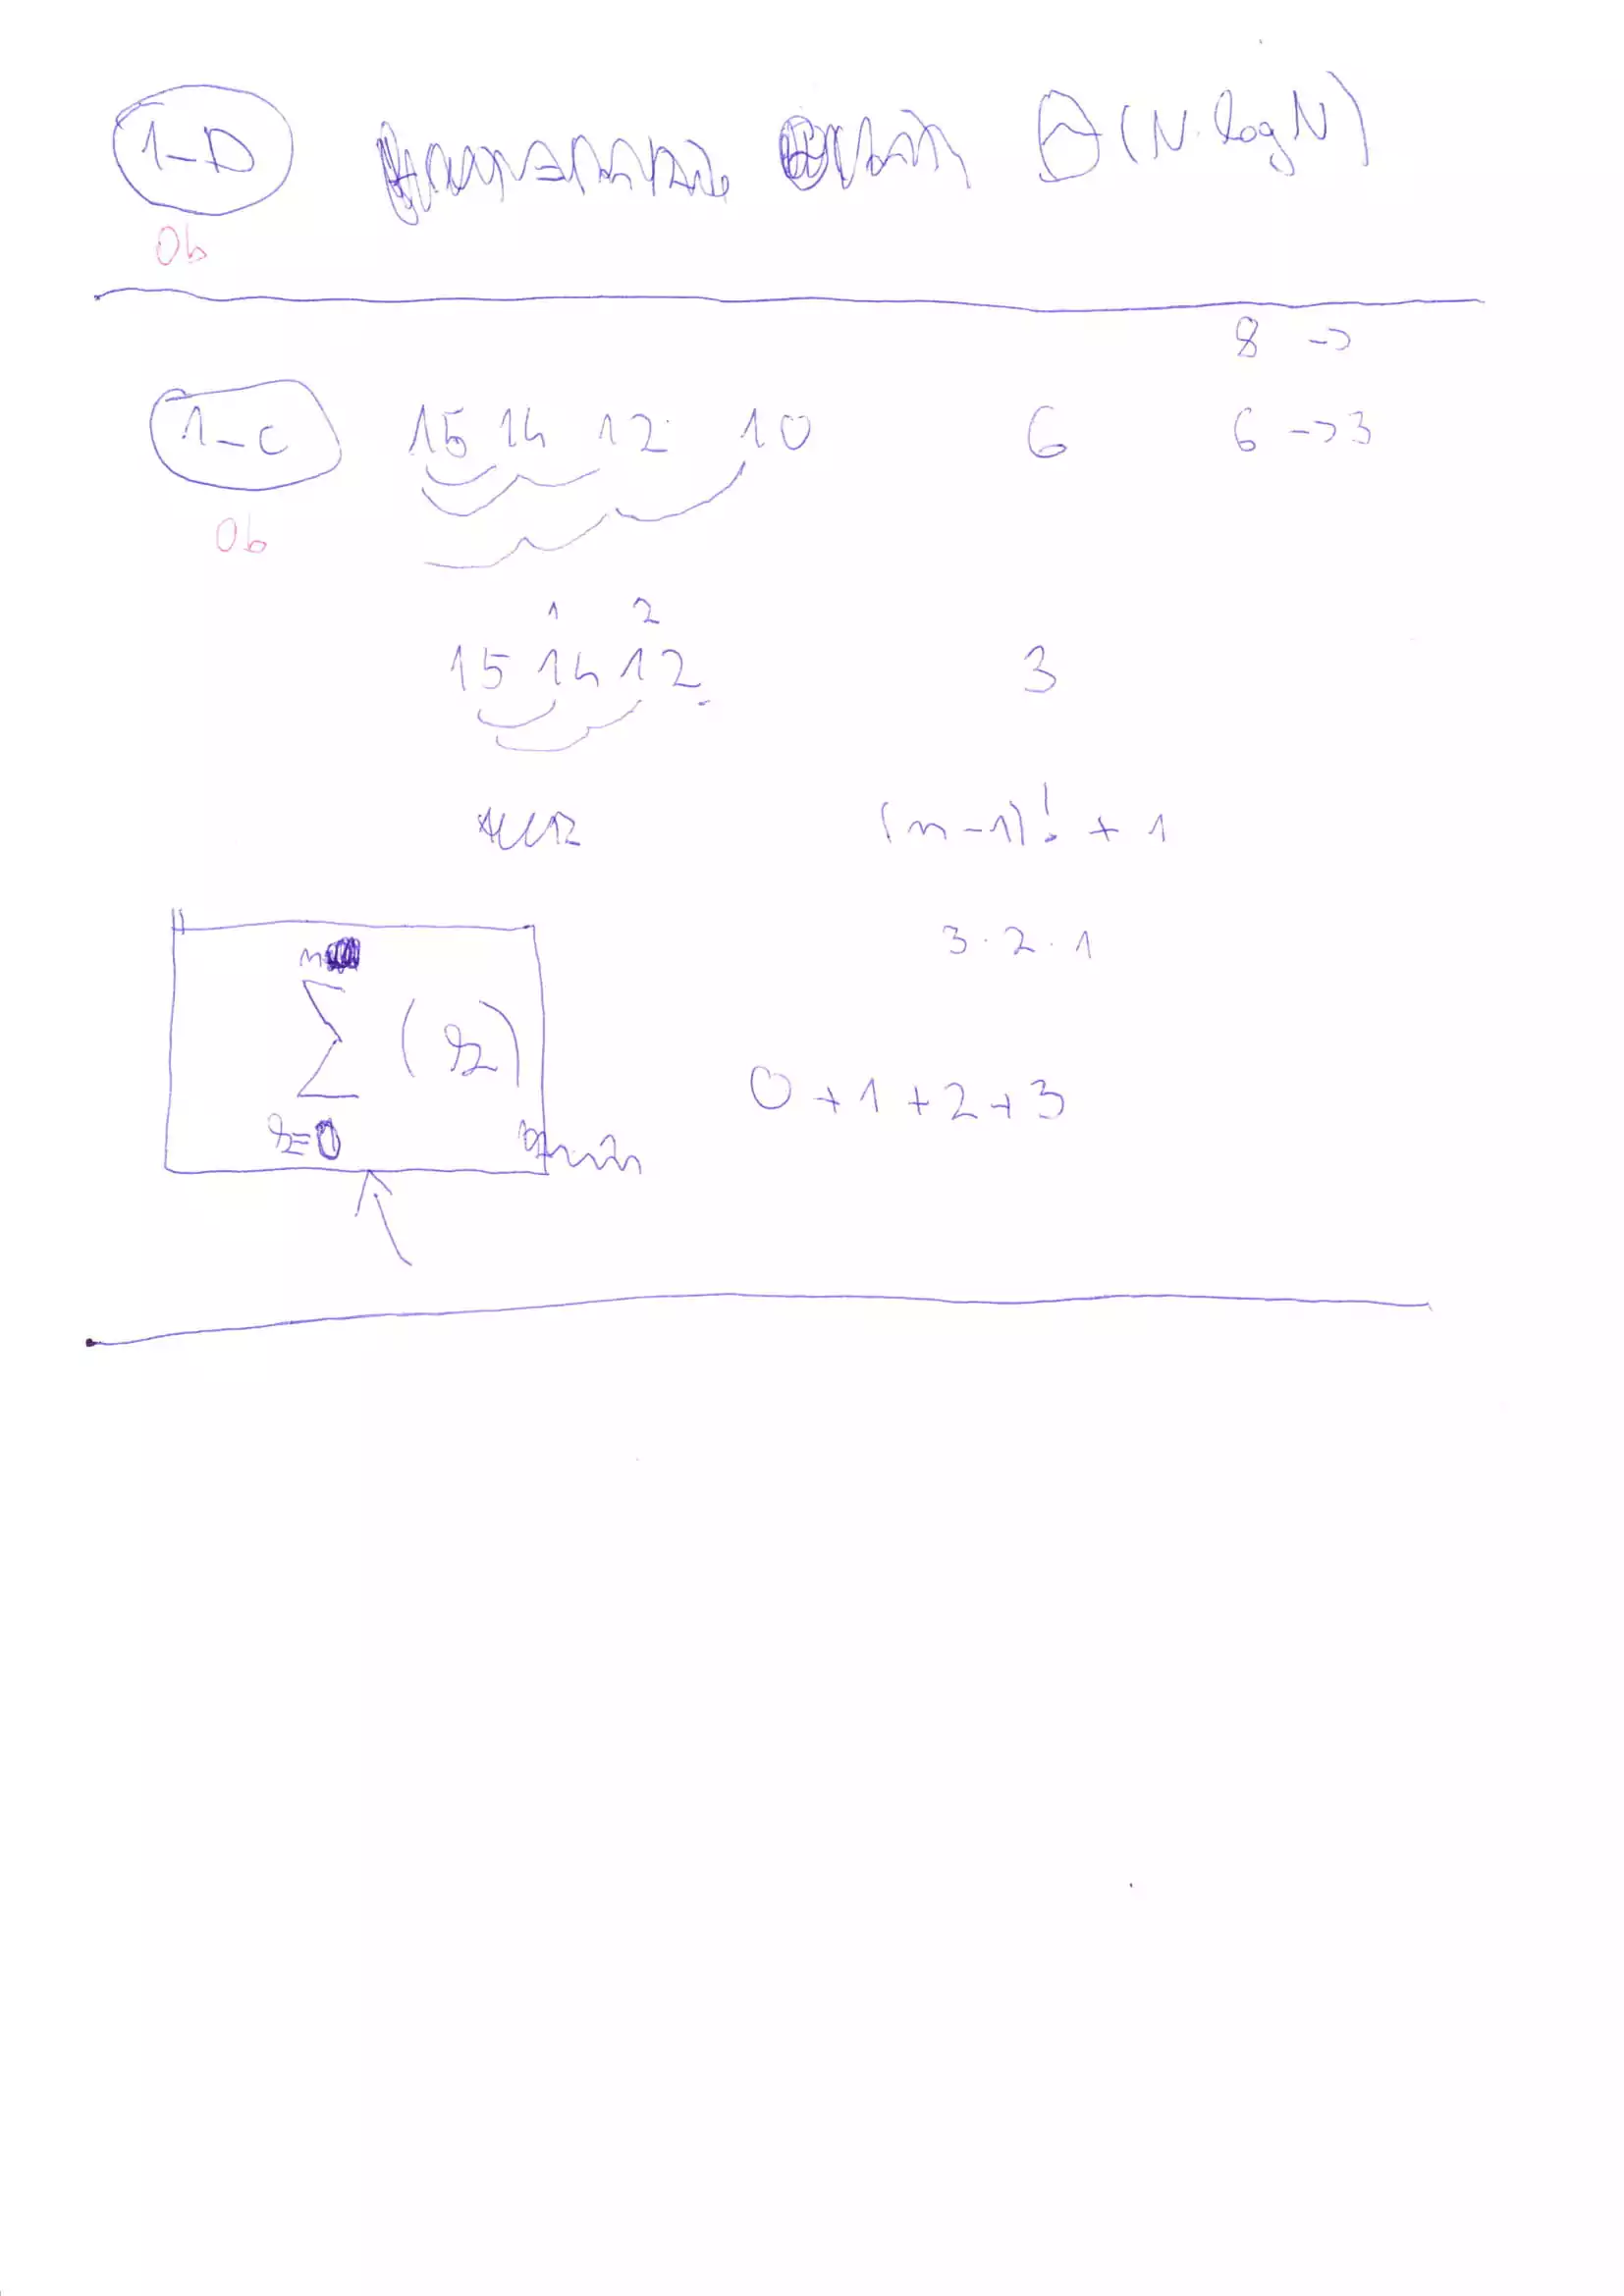 1-D Θ(N·logN)
0b
8 ->
1-C 15 14 12 10 6 6 -> 3
0b
1 2
15 14 12 3
(n-1)! + 1
3·2·1
n
∑ (k)
k=0
0+1+2+3